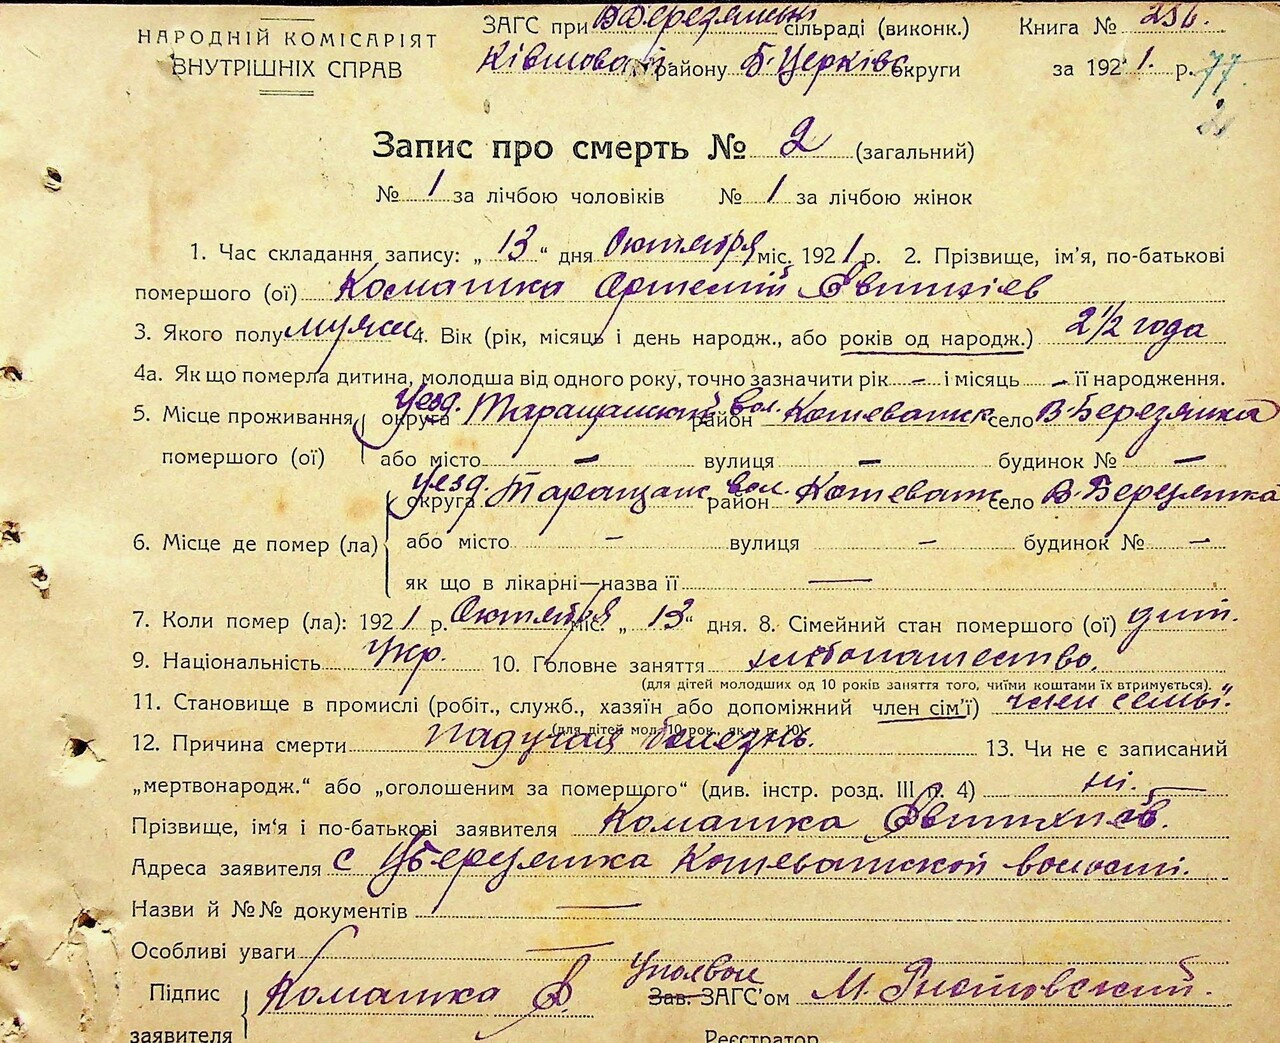 НАРОДНІЙ КОМІСАРІЯТ
ВНУТРІШНІХ СПРАВ
ЗАГС при В Березянській сільраді (виконк.)
району Б. Церківс округи
Книга № 256.
за 1921. р.
77
2
Запис про смерть № 2 (загальний)
№ 1 за лічбою чоловіків № 1 за лічбою жінок
1. Час складання запису: „ 13 “ дня Октября міс. 1921 р. 2. Прізвище, ім'я, по-батькові
помершого (ої) Комашка Артемій Евтихіев
3. Якого полу мужск 4. Вік (рік, місяць і день народж., або років од народж.) 2 1/2 года
4а. Як що померла дитина, молодша від одного року, точно зазначити рік – і місяць – її народження.
5. Місце проживання помершого (ої)
уезд. округа Таращанский вол. район Кошеватск село В-Березянка
або місто – вулиця – будинок № –
6. Місце де помер (ла)
уезд. округа Таращанс вол. район Кошеватск село В-Березянка
або місто – вулиця – будинок № –
як що в лікарні—назва її —
7. Коли помер (ла): 1921 р. Октября міс. „ 13 “ дня. 8. Сімейний стан помершого (ої) дит.
9. Національність Укр. 10. Головне заняття хлебопашество.
(для дітей молодших од 10 років заняття того, чиїми коштами їх втримується).
11. Становище в промислі (робіт., служб., хазяїн або допоміжний член сім'ї) член семьи.
(для дітей мол. 10 рок., як у п. 10)
12. Причина смерти падучая болезнь. 13. Чи не є записаний
„мертвонародж.“ або „оголошеним за помершого“ (див. інстр. розд. III п. 4) ні.
Прізвище, ім‘я і по-батькові заявителя Комашка
Адреса заявителя с Кошеватской волости.
Назви й №№ документів —
Особливі уваги —
Підпис заявителя Комашка
Зав. ЗАГС'ом М.
Реєстратор